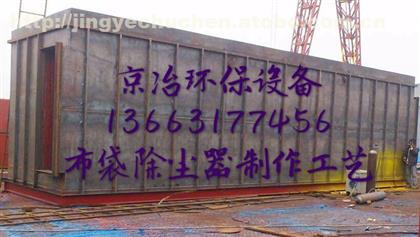 http://jingyechuchen.atobo.com.cn
京冶环保设备
13663177456
布袋除尘器制作工艺